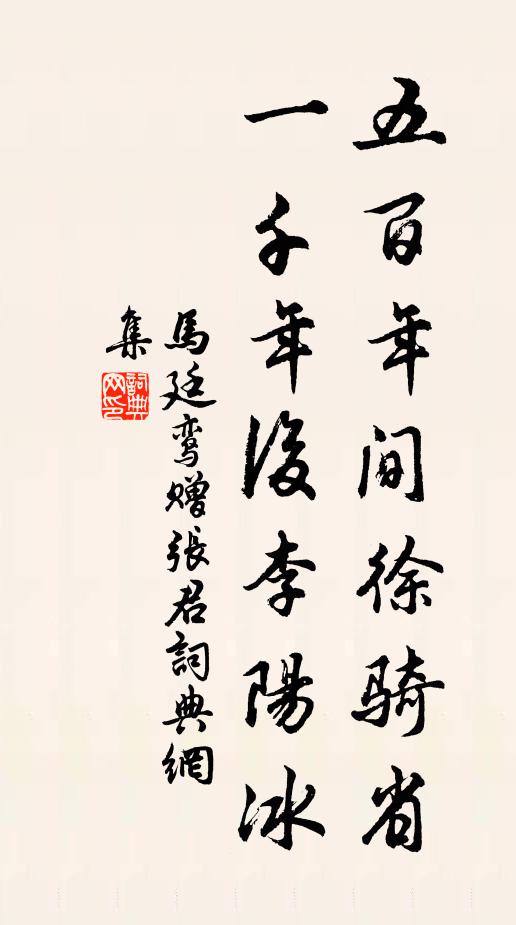 五百年间徐骑省
一千年後李陽冰
馬廷鸾贈張君詞典網
集
詞典網印